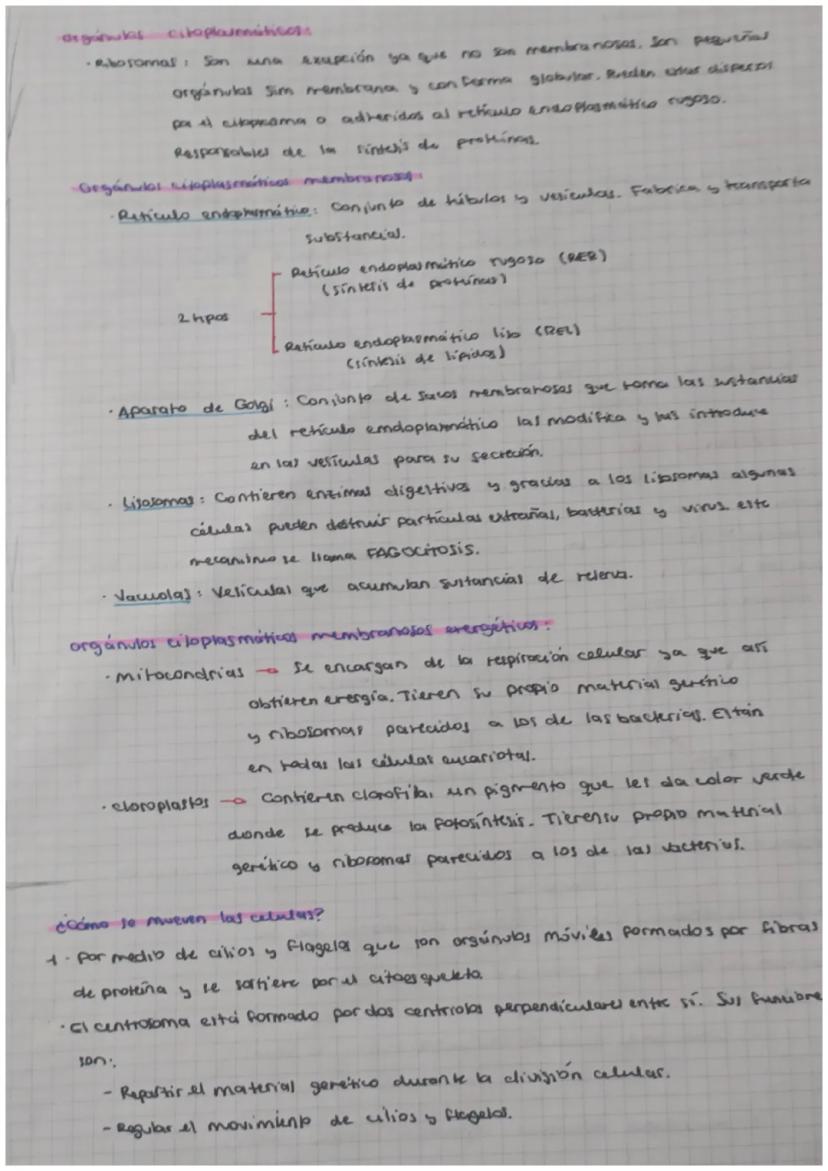 orgánulos citoplasmáticos:
· Ribosomas: Son una excepción ya que no son membranosos. Son pequeños
orgánulos sim membrana y con forma globular. Pueden estar dispersos
por el citoplasma o adheridos al retículo endoplasmático rugoso.
Responsables de la síntesis de proteínas.
Orgánulos citoplasmáticos membranosos:
· Retículo endoplasmático: Conjunto de túbulos y vesículas. Fabrica y transporta
substancias.
Retículo endoplasmático rugoso (RER)
(síntesis de proteínas)
2 tipos
Retículo endoplasmático liso (REL)
(síntesis de lípidos)
· Aparato de Golgi: Conjunto de sacos membranosos que toma las sustancias
del retículo emdoplasmático las modifica y las introduce
en las vesículas para su secreción.
· Lisosomas: Contienen enzimas digestivos y gracias a los lisosomas algunas
células pueden destruir partículas extrañas, bacterias y virus. este
mecanismo se llama FAGOCITOSIS.
· Vacuolas: Vesículas que acumulan sustancias de reserva.
orgánulos citoplasmáticos membranosos energéticos:
· mitocondrias → Se encargan de la respiración celular ya que así
obtienen energía. Tienen su propio material genético
y ribosomas parecidos a los de las bacterias. Están
en todas las células eucariotas.
· cloroplastos → Contienen clorofila, un pigmento que les da color verde
donde se produce la fotosíntesis. Tienen su propio material
genético y ribosomas parecidos a los de las bacterias.
¿Cómo se mueven las células?
1. Por medio de cilios y flagelos que son orgánulos móviles formados por fibras
de proteína y se sostiene por el citoesqueleto.
· El centrosoma está formado por dos centriolos perpendiculares entre sí. Sus funcione
son:
- Repartir el material genético durante la división celular.
- Regular el movimiento de cilios y flagelos.